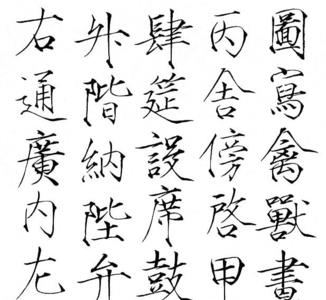 圖寫禽獸畫
丙舍傍啓甲
肆筵設席鼓
升階納陛弁
右通廣內左